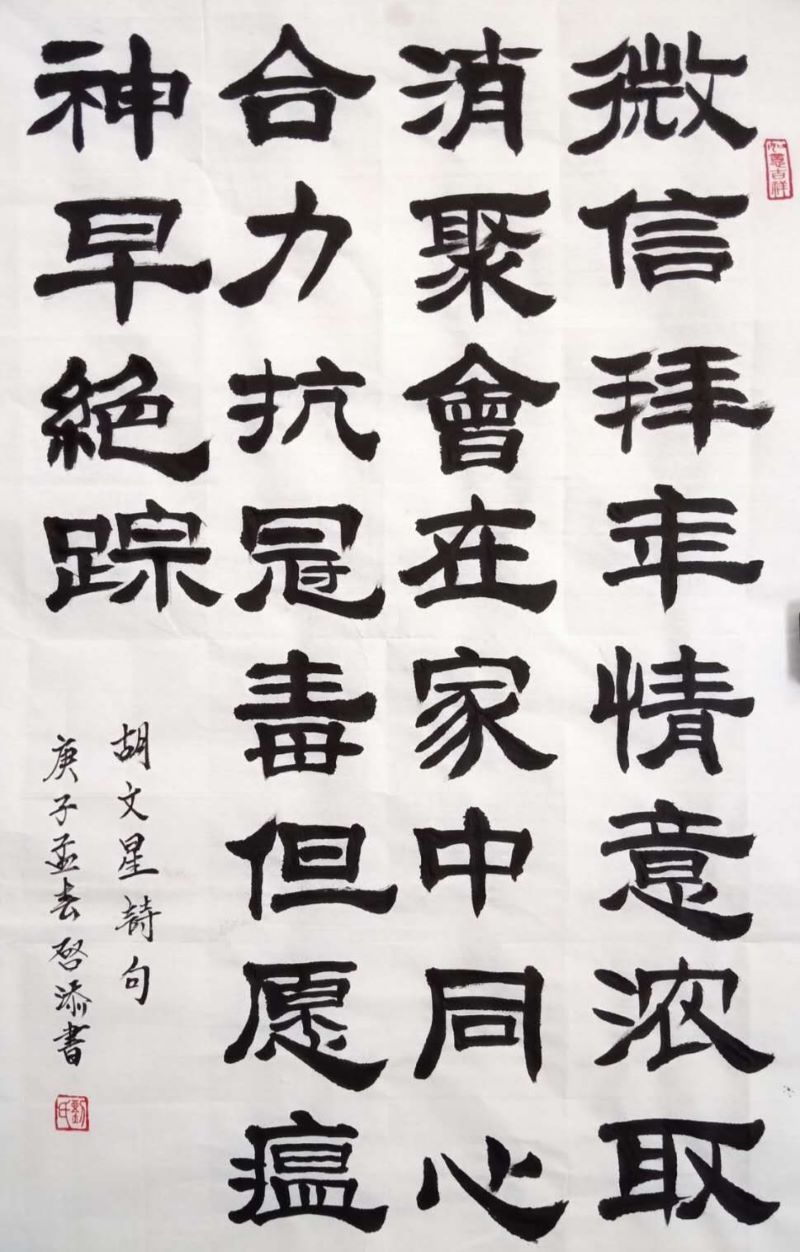 微信拜年情意浓取
消聚會在家中同心
合力抗冠毒但愿瘟
神早絕踪
胡文星詩句
庚子孟春啓添書
劉氏